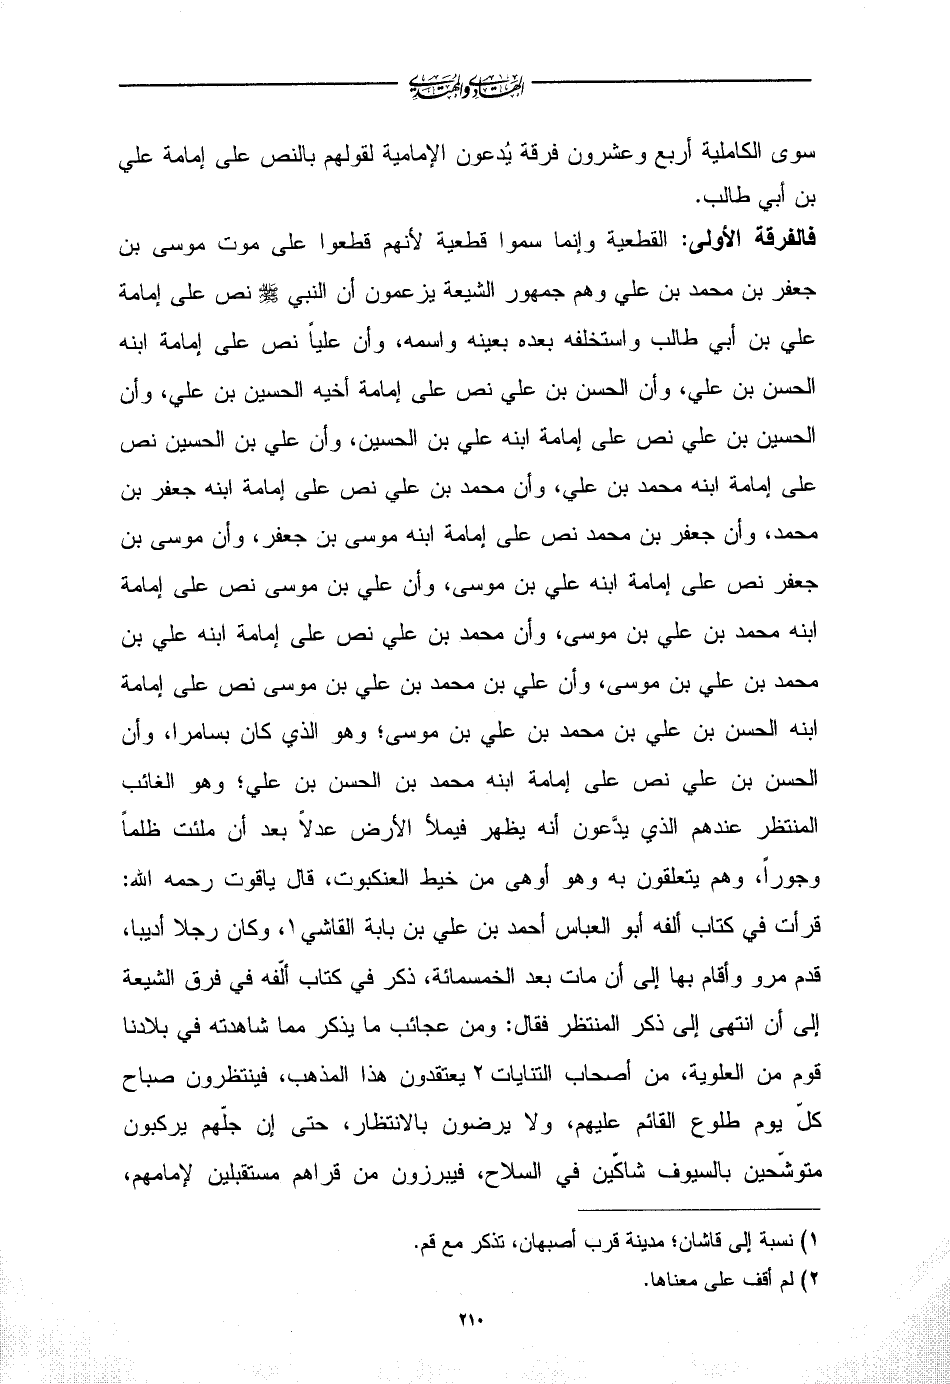 الهادي والمهتدي
سوى الكاملية أربع وعشرون فرقة يُدعون الإمامية لقولهم بالنص على إمامة علي
بن أبي طالب.
فالفرقة الأولى: القطعية وإنما سموا قطعية لأنهم قطعوا على موت موسى بن
جعفر بن محمد بن علي وهم جمهور الشيعة يزعمون أن النبي ﷺ نص على إمامة
علي بن أبي طالب واستخلفه بعده بعينه واسمه، وأن علياً نص على إمامة ابنه
الحسن بن علي، وأن الحسن بن علي نص على إمامة أخيه الحسين بن علي، وأن
الحسين بن علي نص على إمامة ابنه علي بن الحسين، وأن علي بن الحسين نص
على إمامة ابنه محمد بن علي، وأن محمد بن علي نص على إمامة ابنه جعفر بن
محمد، وأن جعفر بن محمد نص على إمامة ابنه موسى بن جعفر، وأن موسى بن
جعفر نص على إمامة ابنه علي بن موسى، وأن علي بن موسى نص على إمامة
ابنه محمد بن علي بن موسى، وأن محمد بن علي نص على إمامة ابنه علي بن
محمد بن علي بن موسى، وأن علي بن محمد بن علي بن موسى نص على إمامة
ابنه الحسن بن علي بن محمد بن علي بن موسى؛ وهو الذي كان بسامرا، وأن
الحسن بن علي نص على إمامة ابنه محمد بن الحسن بن علي؛ وهو الغائب
المنتظر عندهم الذي يدَّعون أنه يظهر فيملأ الأرض عدلاً بعد أن ملئت ظلماً
وجوراً، وهم يتعلقون به وهو أوهى من خيط العنكبوت، قال ياقوت رحمه الله:
قرأت في كتاب ألفه أبو العباس أحمد بن علي بن بابة القاشي ١، وكان رجلا أديبا،
قدم مرو وأقام بها إلى أن مات بعد الخمسمائة، ذكر في كتاب ألّفه في فرق الشيعة
إلى أن انتهى إلى ذكر المنتظر فقال: ومن عجائب ما يذكر مما شاهدته في بلادنا
قوم من العلوية، من أصحاب التنايات ٢ يعتقدون هذا المذهب، فينتظرون صباح
كلّ يوم طلوع القائم عليهم، ولا يرضون بالانتظار، حتى إن جلّهم يركبون
متوشّحين بالسيوف شاكّين في السلاح، فيبرزون من قراهم مستقبلين لإمامهم،
١) نسبة إلى قاشان؛ مدينة قرب أصبهان، تذكر مع قم.
٢) لم أقف على معناها.
٢١٠